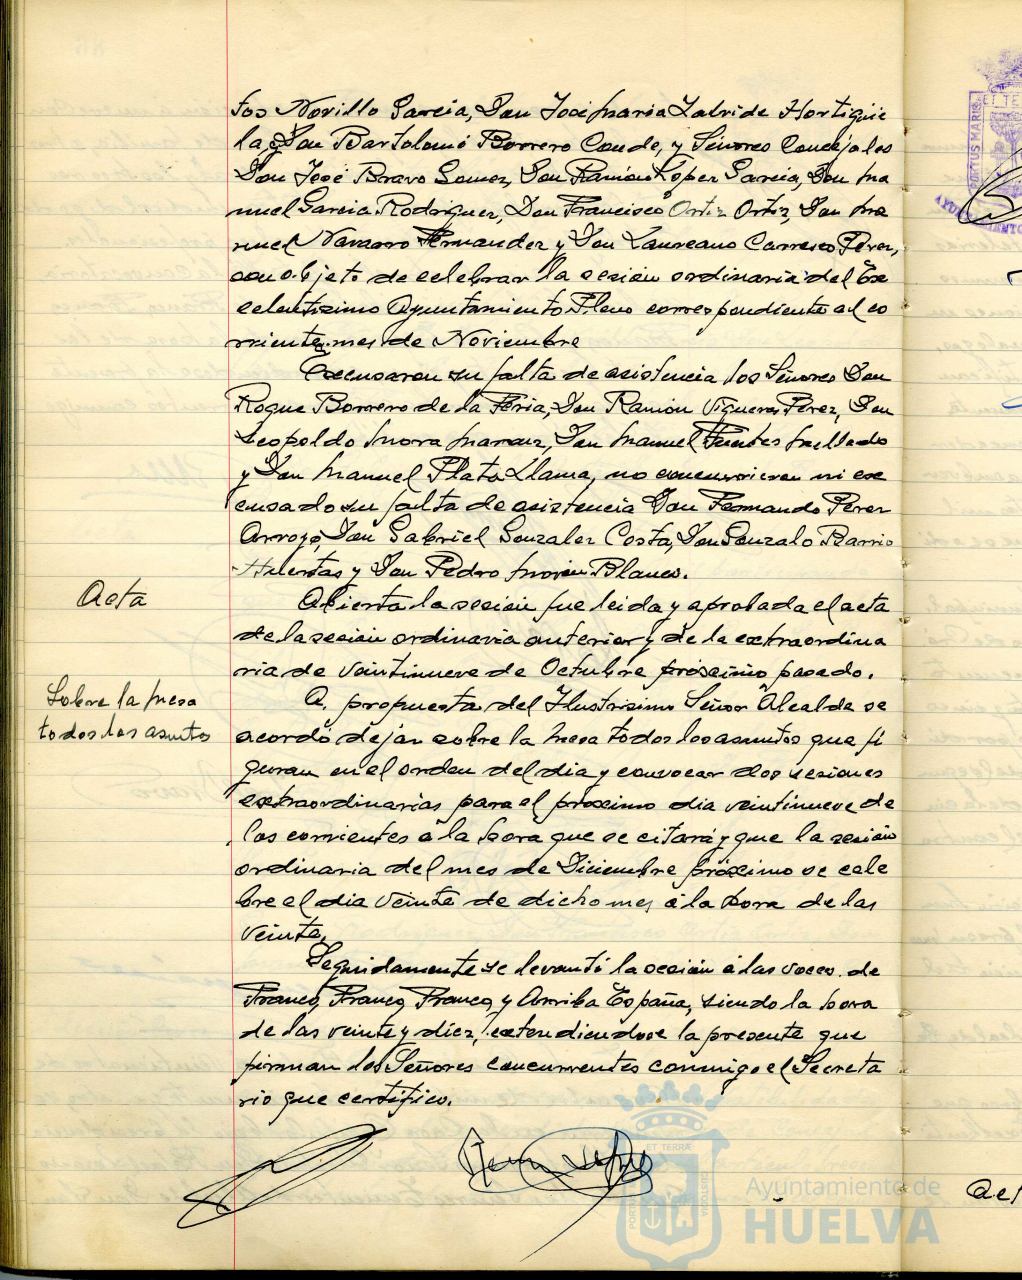 tos Novillo Garcia, Don José Maria Zalvide Hortigüe
la, y Don Bartolomé Borrero Conde, y Señores Concejales
Don José Bravo Gomez, Don Ramón Lopez Garcia, Don Ma
nuel Garcia Rodriguez, Don Francisco Ortiz Ortiz, Don Ma
nuel Navarro Fernandez y Don Laureano Carrasco Perez,
con objeto de celebrar la sesión ordinaria del Ex
celentisimo Ayuntamiento Pleno correspondiente al co
rriente mes de Noviembre
Excusaron su falta de asistencia los Señores Don
Roque Borrero de la Feria, Don Ramón Vigueras Perez, Don
Leopoldo Mora Don Manuel Fuentes Mellado
y Don Manuel Plata Llama, no concurrieron ni ex
cusado su falta de asistencia Don Fernando Perez
Arroyo, Don Gabriel Gonzalez Costa, Don Gonzalo Barrio
-Huertas y Don Pedro Morón Blanco.
Acta
Abierta la sesión fue leida y aprobada el acta
de la sesión ordinaria anterior y de la extraordina
ria de veintinueve de Octubre próximo pasado.
Sobre la mesa
todos los asuntos
A propuesta del Ilustrisimo Señor Alcalde se
acordó dejar sobre la mesa todos los asuntos que fi
guran en el orden del dia y convocar dos sesiones
extraordinarias para el próximo dia veintinueve de
los corrientes á la hora que se citará y que la sesión
ordinaria del mes de Diciembre próximo se cele
bre el dia veinte de dicho mes á la hora de las
veinte.
Seguidamente se levantó la sesión á las voces de
Franco, Franco, Franco, y Arriba España, siendo la hora
de las veinte y diez, extendiendose la presente que
firman los Señores concurrentes conmigo el Secreta
rio que certifico.
Ayuntamiento de
HUELVA